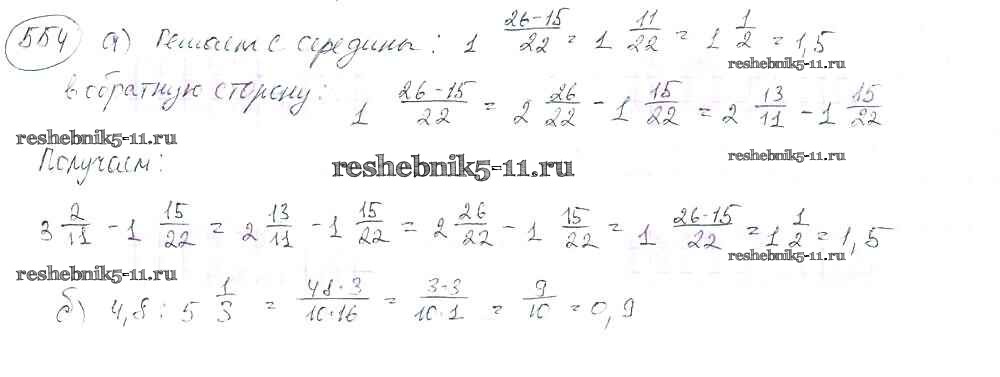 554 а) Решаем с середины: 1 (26-15)/22 = 1 11/22 = 1 1/2 = 1,5
reshebnik5-11.ru
в обратную сторону: 1 (26-15)/22 = 2 26/22 - 1 15/22 = 2 13/11 - 1 15/22
reshebnik5-11.ru
reshebnik5-11.ru
reshebnik5-11.ru
Получаем:
3 2/11 - 1 15/22 = 2 13/11 - 1 15/22 = 2 26/22 - 1 15/22 = 1 (26-15)/22 = 1 1/2 = 1,5
reshebnik5-11.ru
reshebnik5-11.ru
б) 4,8 : 5 1/3 = (48·3)/(10·16) = (3·3)/(10·1) = 9/10 = 0,9